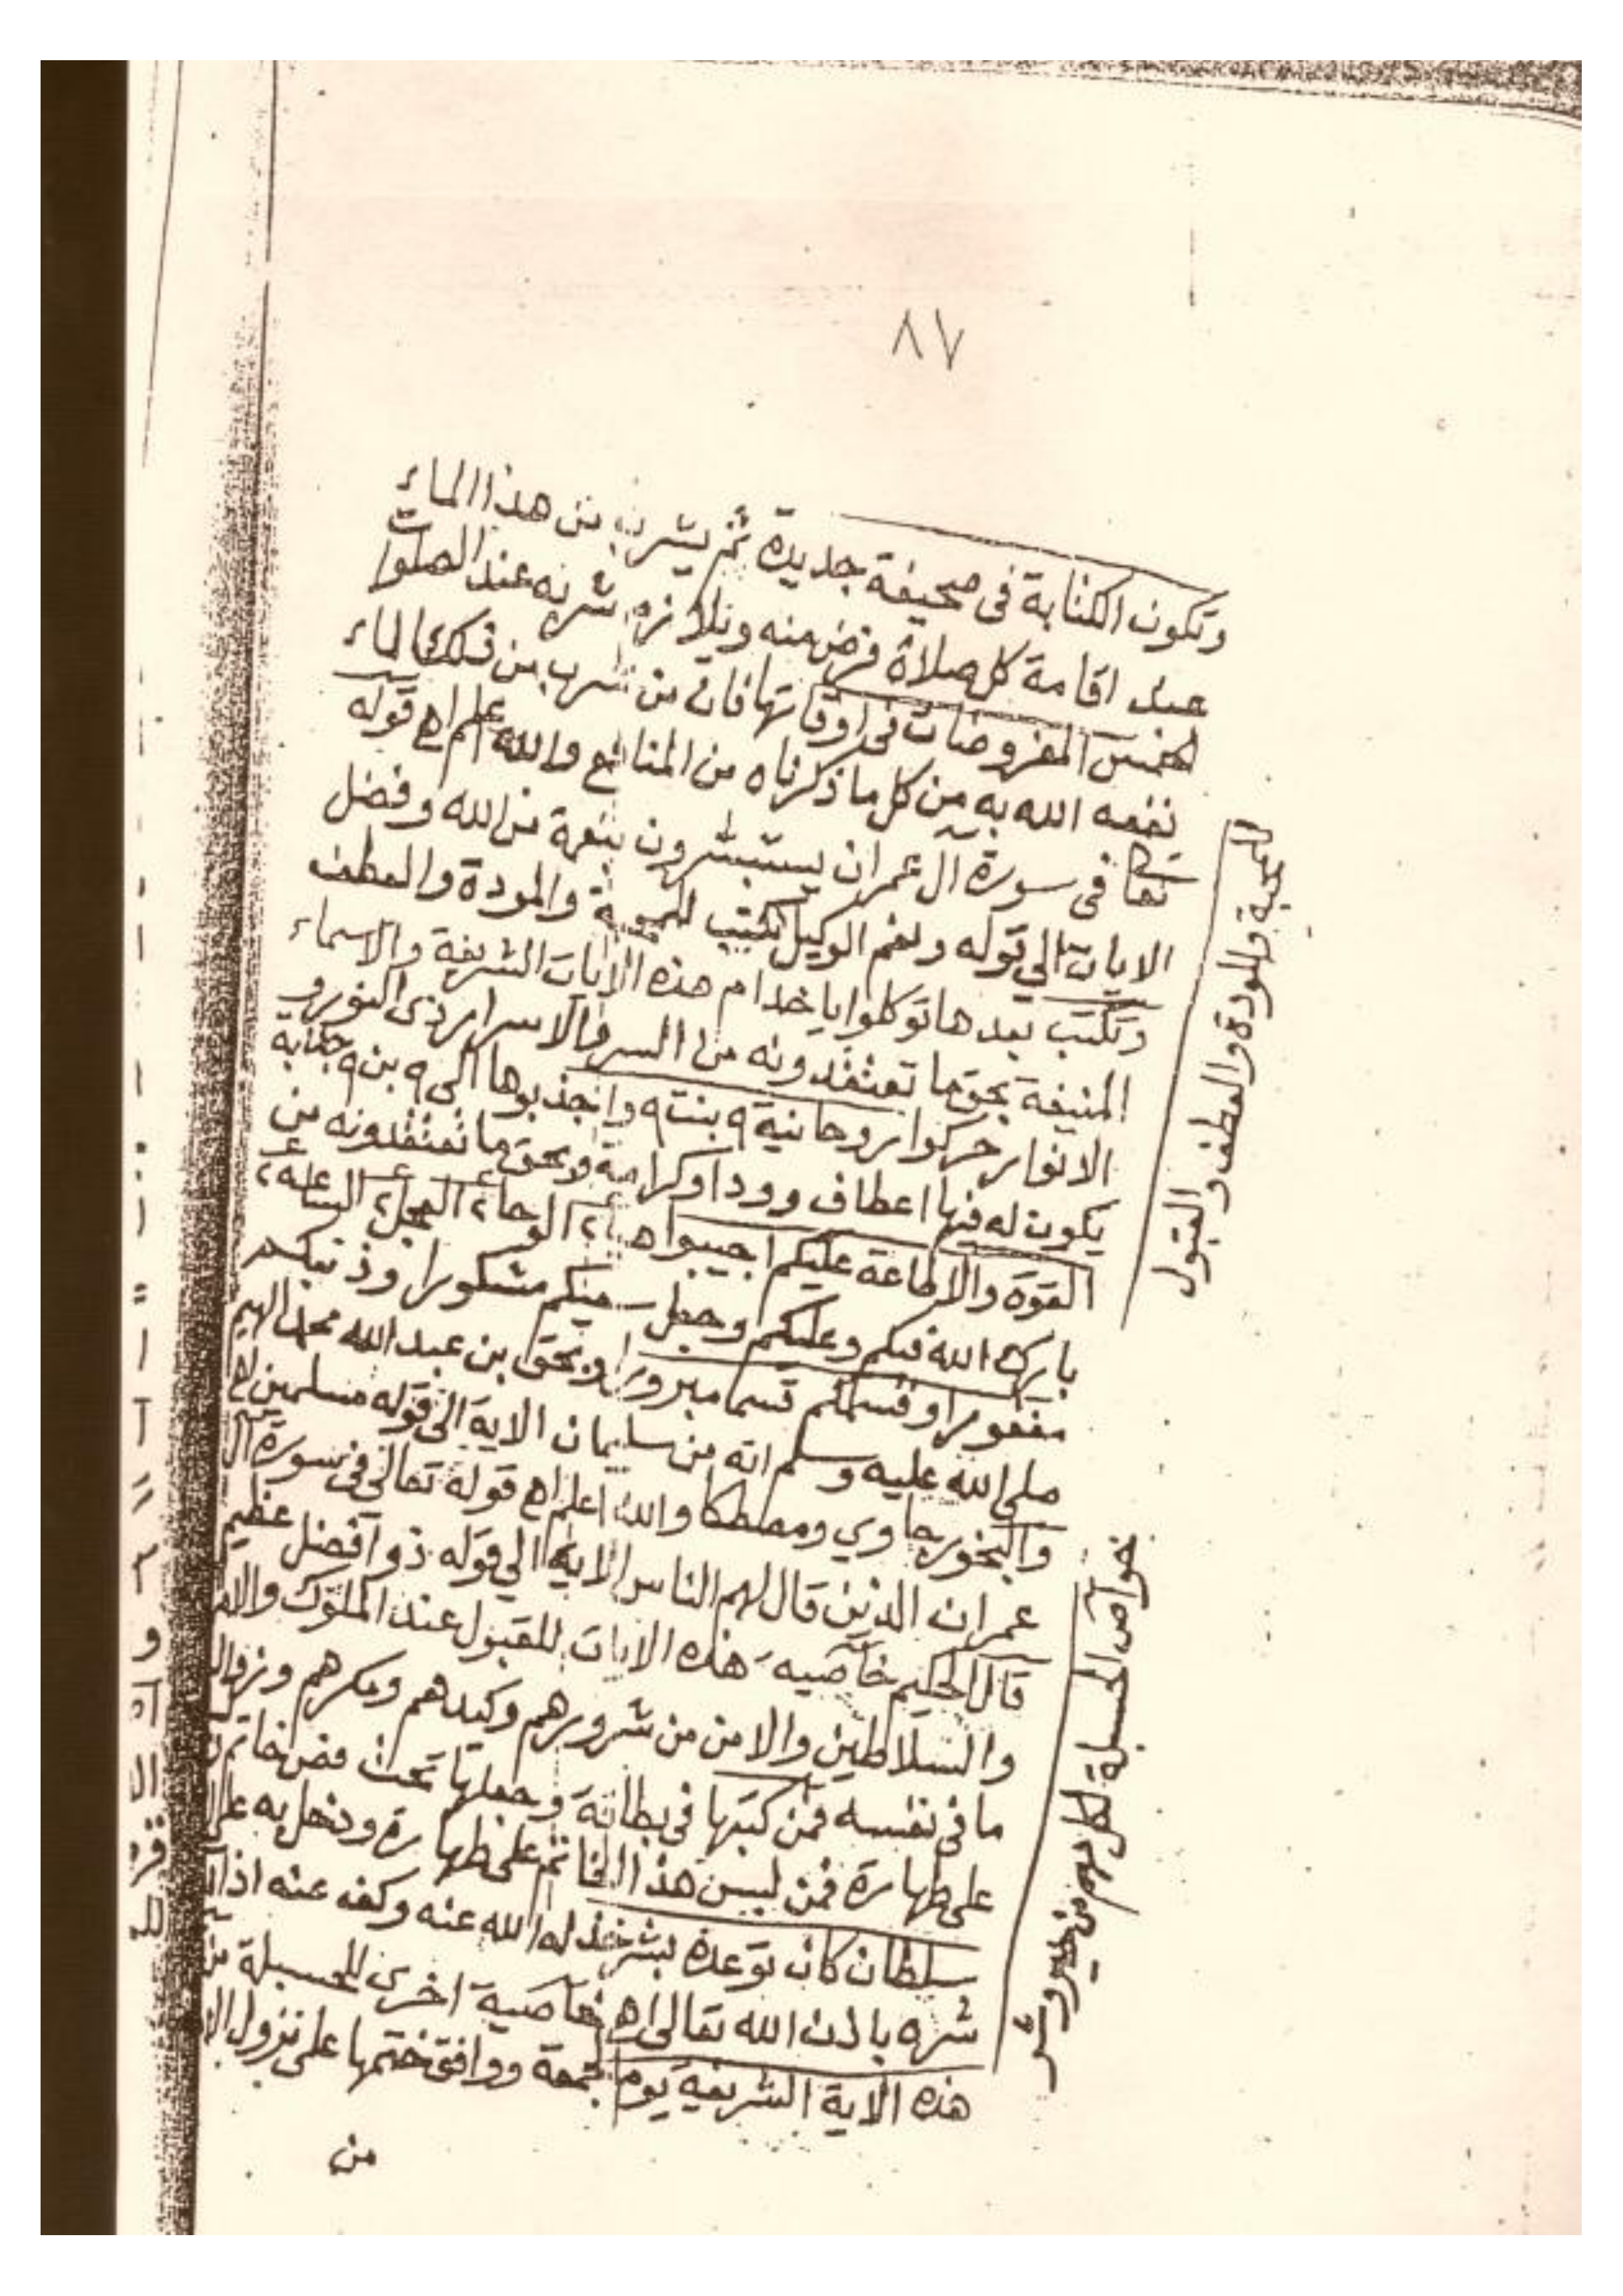 ٨٧
وتكون الكتابة فى صحيفة جديدة ثم يشرب من هذا الماء
عند اقامة كل صلاة فرض منه ويلازم شربه عند الصلوات
الخمس المفروضات فى اوقاتها فان من شرب من ذلك الماء
نفعه الله به من كل ما ذكرناه من المنافع والله اعلم اھ قوله
تعا فى سورة آل عمران يستبشرون بنعمة من الله وفضل
الايات الى قوله ونعم الوكيل تكتب للمحبة والمودة والعطف
وتكتب بعدها توكلوا يا خدام هذه الايات الشريفة والاسماء
المنيفة بحق ما تعتقدونه من السر والاسرار ذى النور و
الانوار حركوا روحانية ٩ بنت ٩ واجذبوها الى ٩ بن ٩ جذابه
يكون له فيها اعطاف وودا وكرامة وبحق ما تعتقدونه من
القوة والاطاعة عليكم اجيبوا هيا ٢ الوحا ٢ العجل ٢ الساعه ٢
بارك الله فيكم وعليكم وجعل سعيكم مشكورا وذنبكم
مغفورا وقسمكم قسما مبرورا وبحق بن عبد الله محمد
صلى الله عليه وسلم انه من سليمان الاية الى قوله مسلمين اھ
والبخور جاوي ومصطكا والله اعلم اھ قوله تعالى فى سورة آل
عمران الذين قال لهم الناس الاية الي قوله ذو فضل عظيم
قال الحكيم خاصيه هذه الايات للقبول عند الملوك
والسلاطين والامن من شرورهم وكيدهم ومكرهم
ما فى نفسه فمن كتبها فى بطاقة وجعلها تحت فص خاتم
على طهارة فمن لبس هذا الخاتم على طهارة ودخل به على
سلطان كان توعده بشر خذله الله عنه وكف عنه
شره باذن الله تعالى اھ خاصية اخرى للحسبلة من
هذه الاية الشريفة يوم جمعة ووافق ختمها على نزول
من
للمحبة والمودة والعطف والقبول
خواص الحسبلة لكل مهم من خير وشر